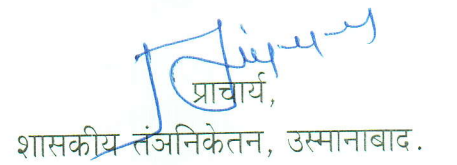 प्राचार्य,
शासकीय तंत्रनिकेतन, उस्मानाबाद.